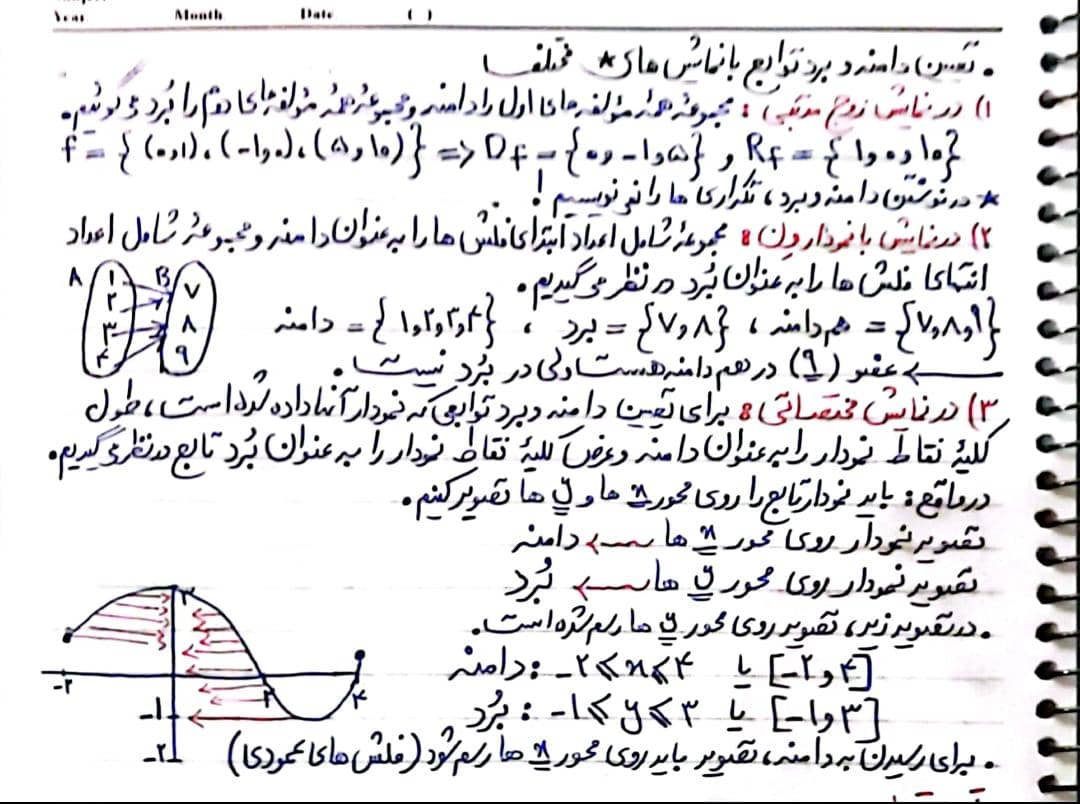 Year Month Date ( )
• تعیین دامنه و برد توابع با نمایش های * مختلف
۱) در نمایش زوج مرتبی : مجموعهٔ همهٔ مؤلفه های اول را دامنه و مجموعهٔ همهٔ مؤلفه های دوم را بُرد می گوئیم.
f = { (۰,۱), (-۱,۰), (۵,۱۰) } => Df = {۰, -۱, ۵} و Rf = {۱, ۰, ۱۰}
* در نوشتن دامنه و برد، تکراری ها را نمی نویسیم !
۲) در نمایش با نمودار ون : مجموعهٔ شامل اعداد ابتدای فلش ها را به عنوان دامنه و مجموعهٔ شامل اعداد
انتهای فلش ها را به عنوان بُرد در نظر می گیریم.
A ۱ ۲ ۳ ۴ B ۷ ۸ ۹
دامنه = {۱,۲,۳,۴} ، برد = {۷,۸} ، هم دامنه = {۷,۸,۹}
عضو (۹) در هم دامنه هست ولی در بُرد نیست.
۳) در نمایش مختصاتی : برای تعیین دامنه و برد توابعی که نمودار آنها داده شده است، طول
کلیهٔ نقاط نمودار را به عنوان دامنه و عرض کلیهٔ نقاط نمودار را به عنوان بُرد تابع در نظر می گیریم.
در واقع : باید نمودار تابع را روی محور x ها و y ها تصویر کنیم.
تصویر نمودار روی محور x ها ← دامنه
تصویر نمودار روی محور y ها ← بُرد
• در تصویر زیر، تصویر روی محور y ها رسم شده است.
دامنه : -۲ ≤ x ≤ ۴ یا [-۲ , ۴]
بُرد : -۱ ≤ y ≤ ۳ یا [-۱ , ۳]
۳ -۲ ۲ ۴ -۱ -۲
• برای رسیدن به دامنه، تصویر باید روی محور x ها رسم شود (فلش های عمودی)